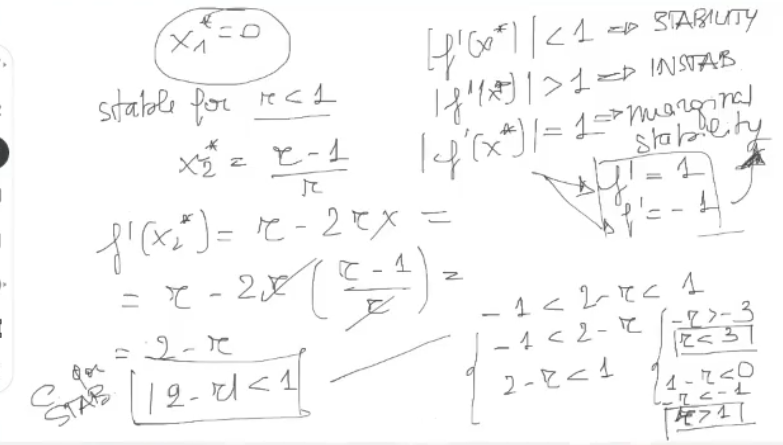 x₁* = 0
stable for r < 1
x₂* = r - 1 / r
f'(x₂*) = r - 2rx =
= r - 2r ( r - 1 / r ) =
= 2 - r
STAB |2 - r| < 1
|f'(x*)| < 1 => STABILITY
|f'(x*)| > 1 => INSTAB
|f'(x*)| = 1 => marginal
stability
f' = 1
f' = - 1
- 1 < 2 - r < 1
- 1 < 2 - r
2 - r < 1
- r > - 3
r < 3
1 - r < 0
- r < - 1
r > 1